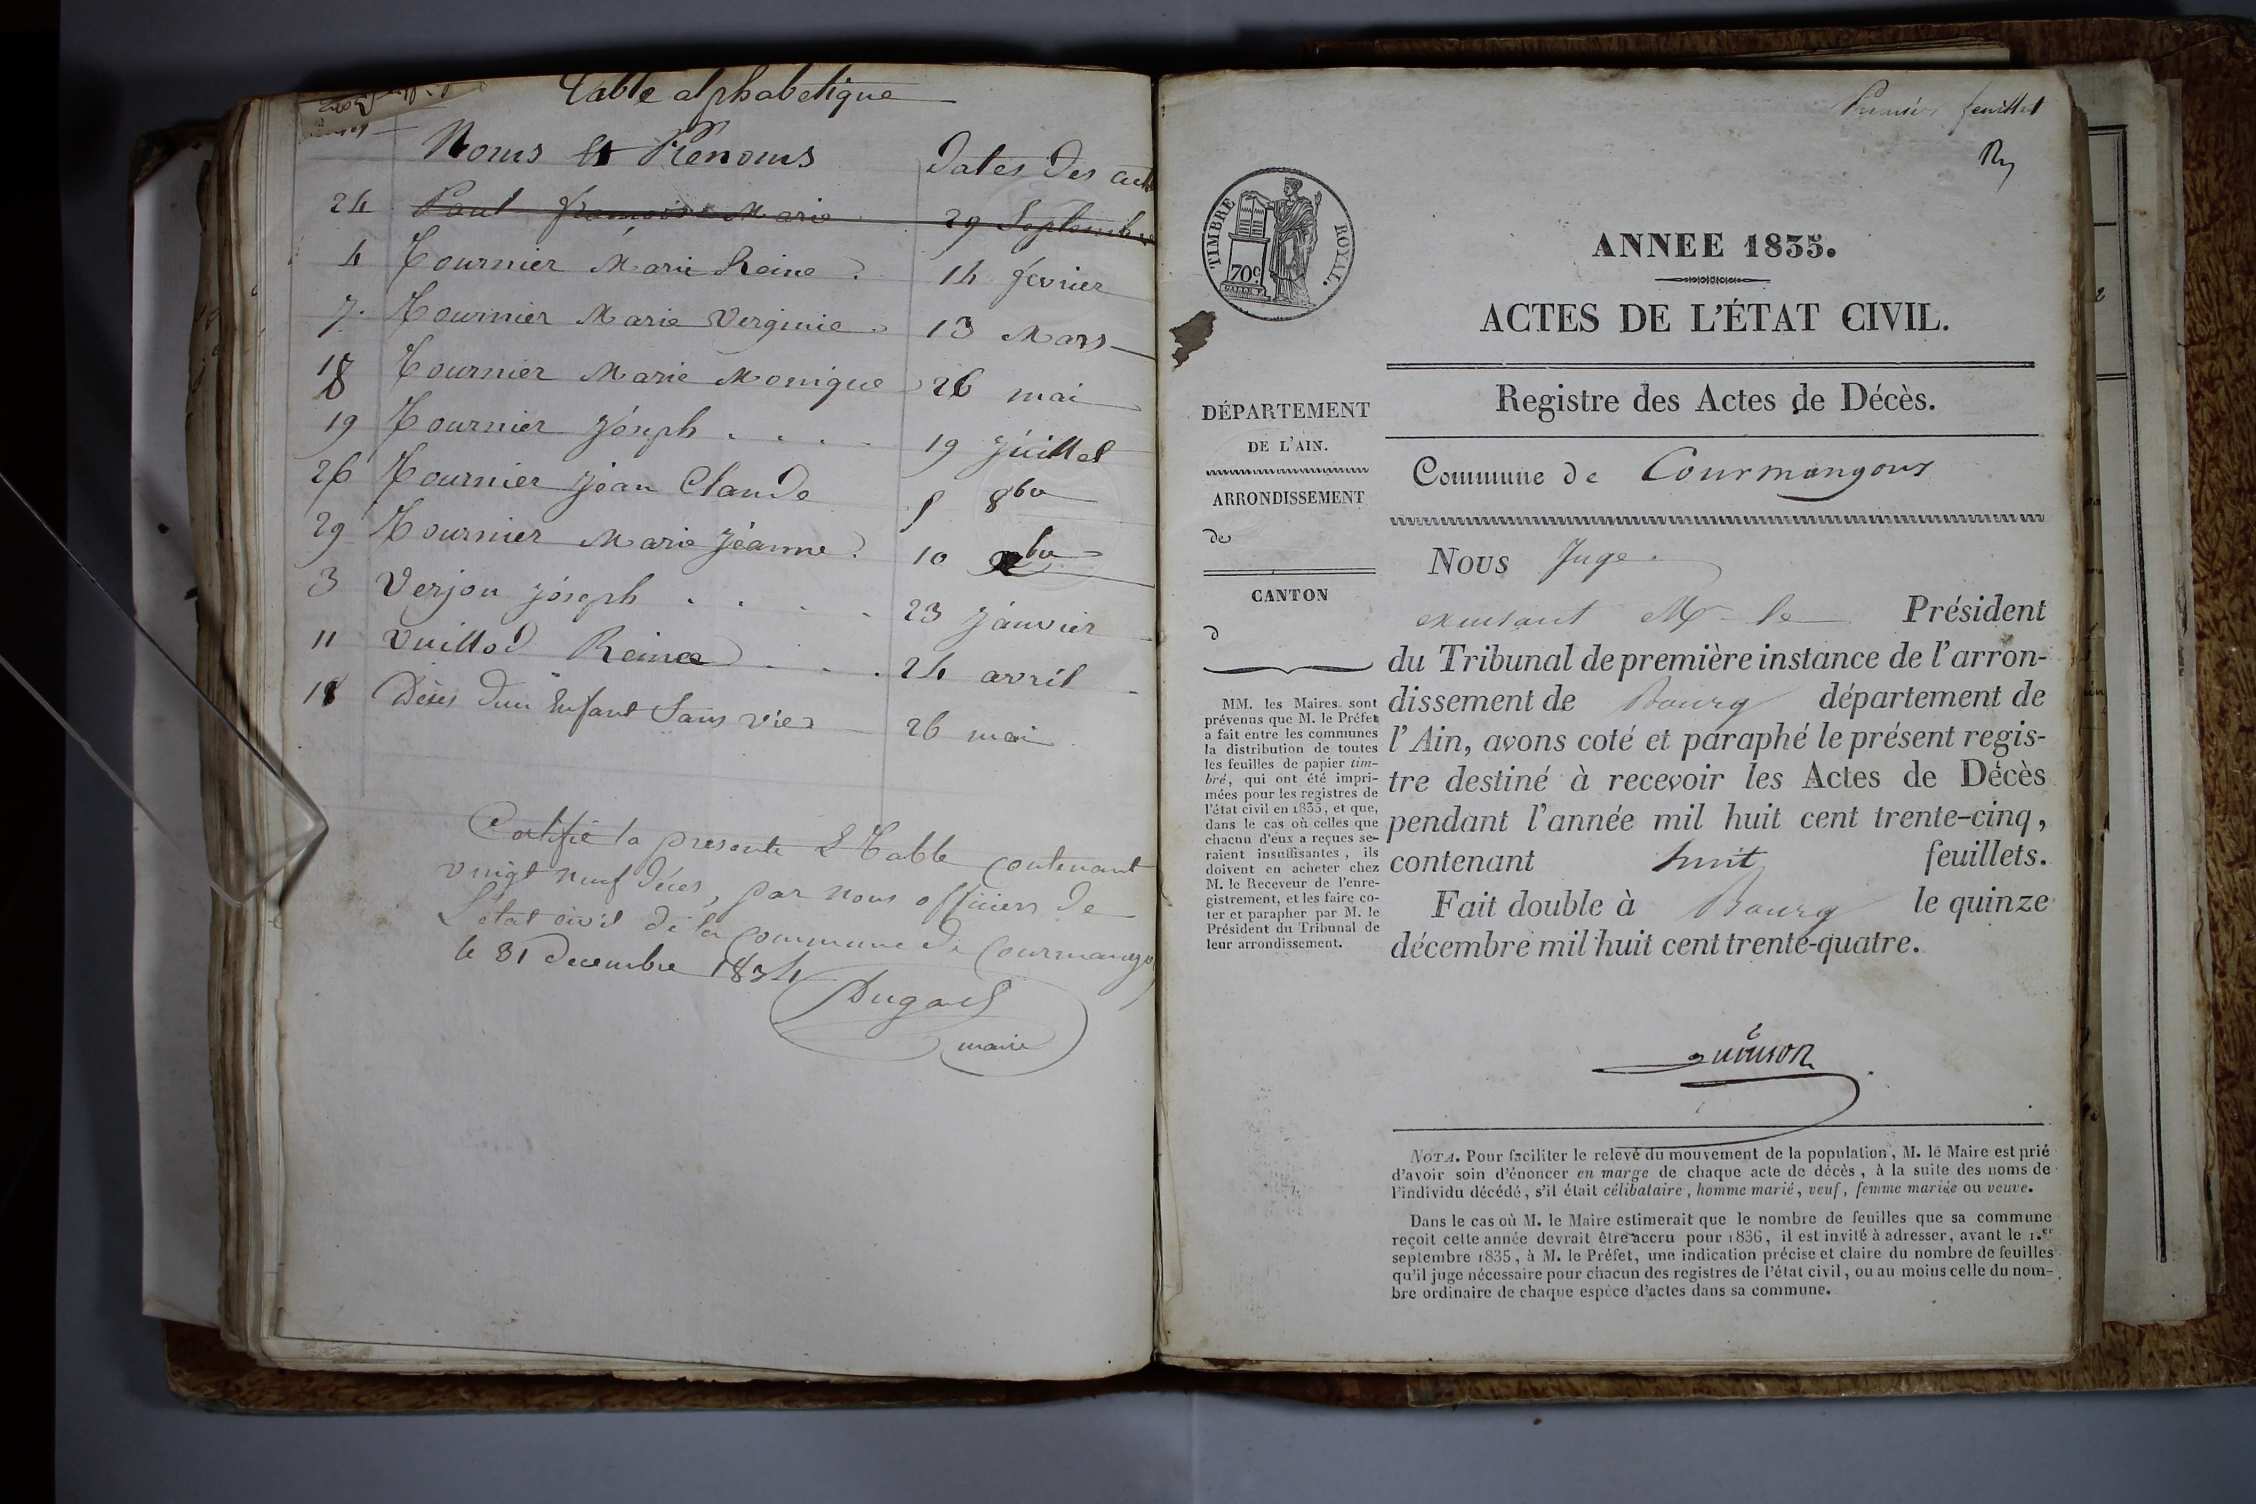 Table alphabetique
Noms et Prénoms
Dates des actes
24 Paul françoise Marie 29 Septembre
4 Tournier Marie Reine 14 février
7 Tournier Marie Virginie 13 Mars
18 Tournier Marie Monique 26 mai
19 Tournier Joseph . . . . 19 Juillet
26 Tournier Jean Claude 5 8bre
29 Tournier Marie Jeanne 10 xbre
3 Verjou Joseph . . . . 23 Janvier
11 Vuillod Reine . . . 24 avril
18 Décès d'un Enfant Sans vie 26 mai
Certifié la présente Table contenant
vingt neuf décès, par nous officiers de
L'état civil de la commune de Courmangou
le 31 decembre 1834
maire
Premier feuillet
TIMBRE ROYAL.
70c
ANNEE 1835.
ACTES DE L'ÉTAT CIVIL.
Registre des Actes de Décès.
Commune de Courmangoux
DÉPARTEMENT
DE L'AIN.
ARRONDISSEMENT
de
CANTON
d
MM. les Maires sont
prévenus que M. le Préfet
a fait entre les communes
la distribution de toutes
les feuilles de papier tim-
bré, qui ont été impri-
mées pour les registres de
l'état civil en 1835, et que,
dans le cas où celles que
chacun d'eux a reçues se-
raient insuffisantes, ils
doivent en acheter chez
M. le Receveur de l'enre-
gistrement, et les faire co-
ter et parapher par M. le
Président du Tribunal de
leur arrondissement.
Nous Juge
exerçant Mr le Président
du Tribunal de première instance de l'arron-
dissement de Bourg département de
l'Ain, avons coté et paraphé le présent regis-
tre destiné à recevoir les Actes de Décès
pendant l'année mil huit cent trente-cinq,
contenant huit feuillets.
Fait double à Bourg le quinze
décembre mil huit cent trente-quatre.
NOTA. Pour faciliter le relevé du mouvement de la population, M. le Maire est prié
d'avoir soin d'énoncer en marge de chaque acte de décès, à la suite des noms de
l'individu décédé, s'il était célibataire, homme marié, veuf, femme mariée ou veuve.
Dans le cas où M. le Maire estimerait que le nombre de feuilles que sa commune
reçoit cette année devrait être accru pour 1836, il est invité à adresser, avant le 1.er
septembre 1835, à M. le Préfet, une indication précise et claire du nombre de feuilles
qu'il juge nécessaire pour chacun des registres de l'état civil, ou au moins celle du nom-
bre ordinaire de chaque espèce d'actes dans sa commune.